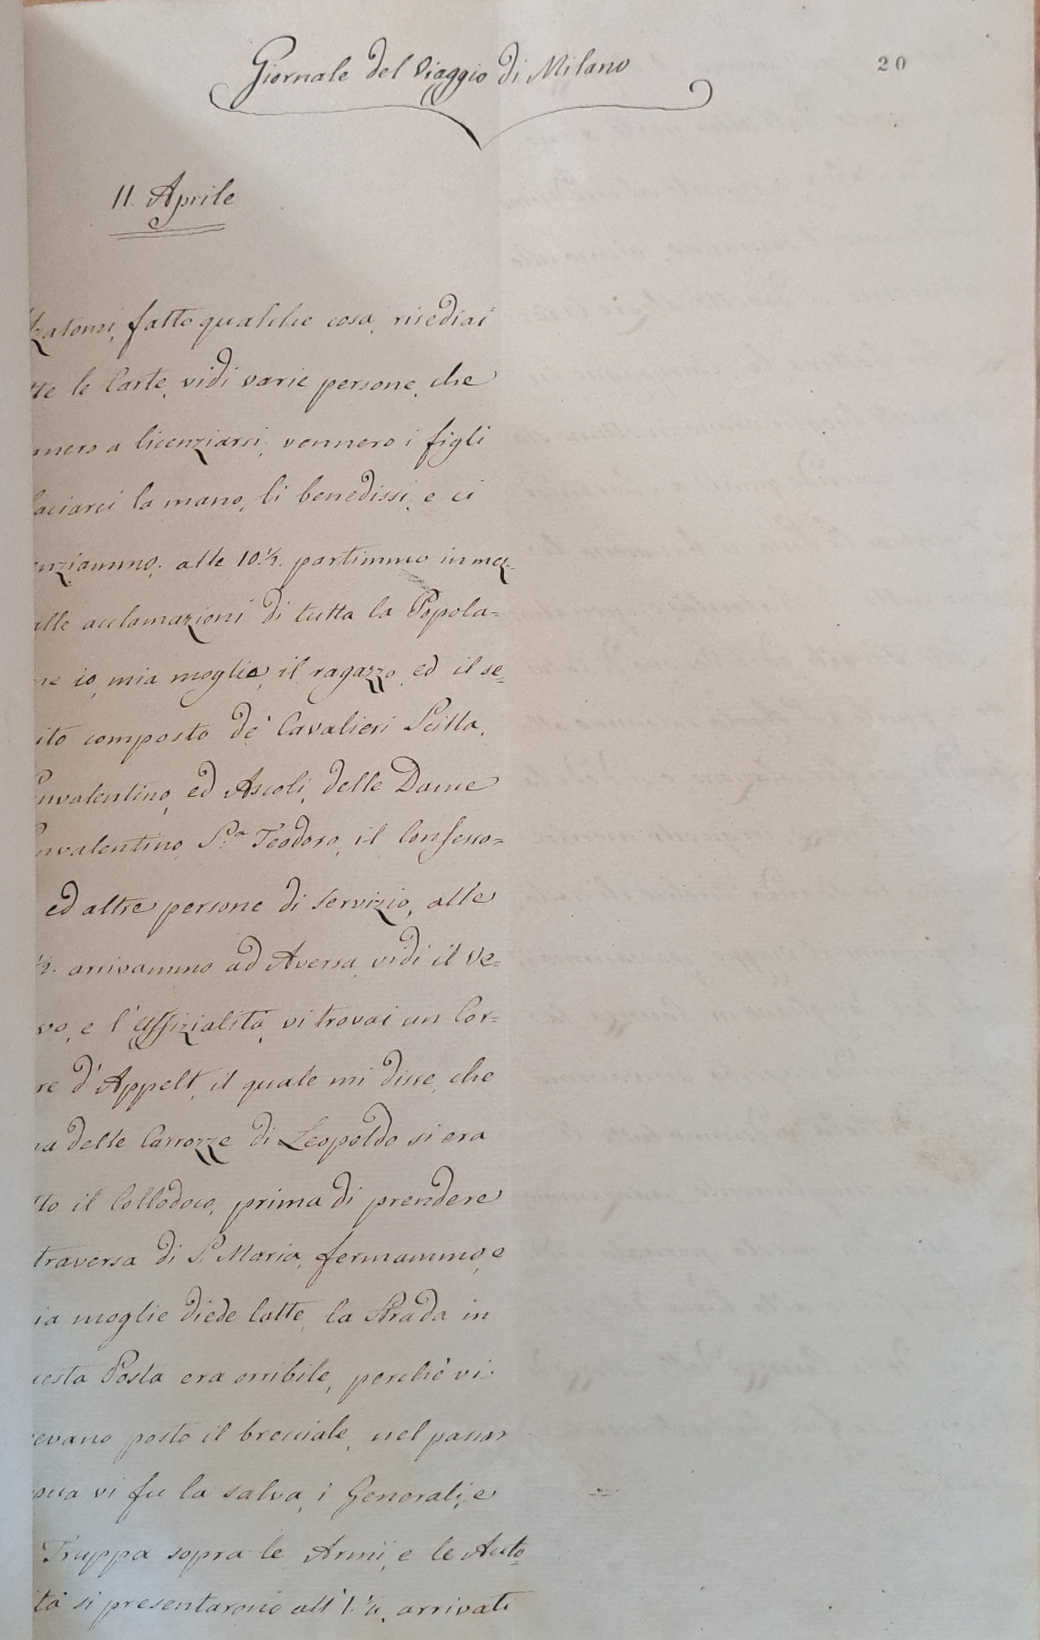 Giornale del Viaggio di Milano
20
11. Aprile
zatomi, fatto qualche cosa, risediai
tte le Carte, vidi varie persone, che
nnero a licenziarsi, vennero i figli
aciarci la mano, li benedissi, e ci
enziammo; alle 10.½. partimmo in mez-
alle acclamazioni di tutta la Popola=
ne io, mia moglie, il ragazzo, ed il se=
ito composto de' Cavalieri Scilla,
nvalentino, ed Ascoli, delle Dame
nvalentino, S.ª Teodoro, il Confesso=
ed altre persone di servizio, alle
½. arrivammo ad Aversa, vidi il Ve=
vo, e l'Uffizialità, vi trovai un Cor=
re d'Appelt, il quale mi disse, che
na delle Carrozze di Leopoldo si era
tto il Collodoco, prima di prendere
traversa di S. Maria, fermammo, e
ia moglie diede latte, la Strada in
esta Posta era orribile, perchè vi
evano posto il brecciale, nel passar
pua vi fu la salva, i Generali, e
Truppa sopra le Armi, e le Auto=
tà si presentarono all'1.¼, arrivati